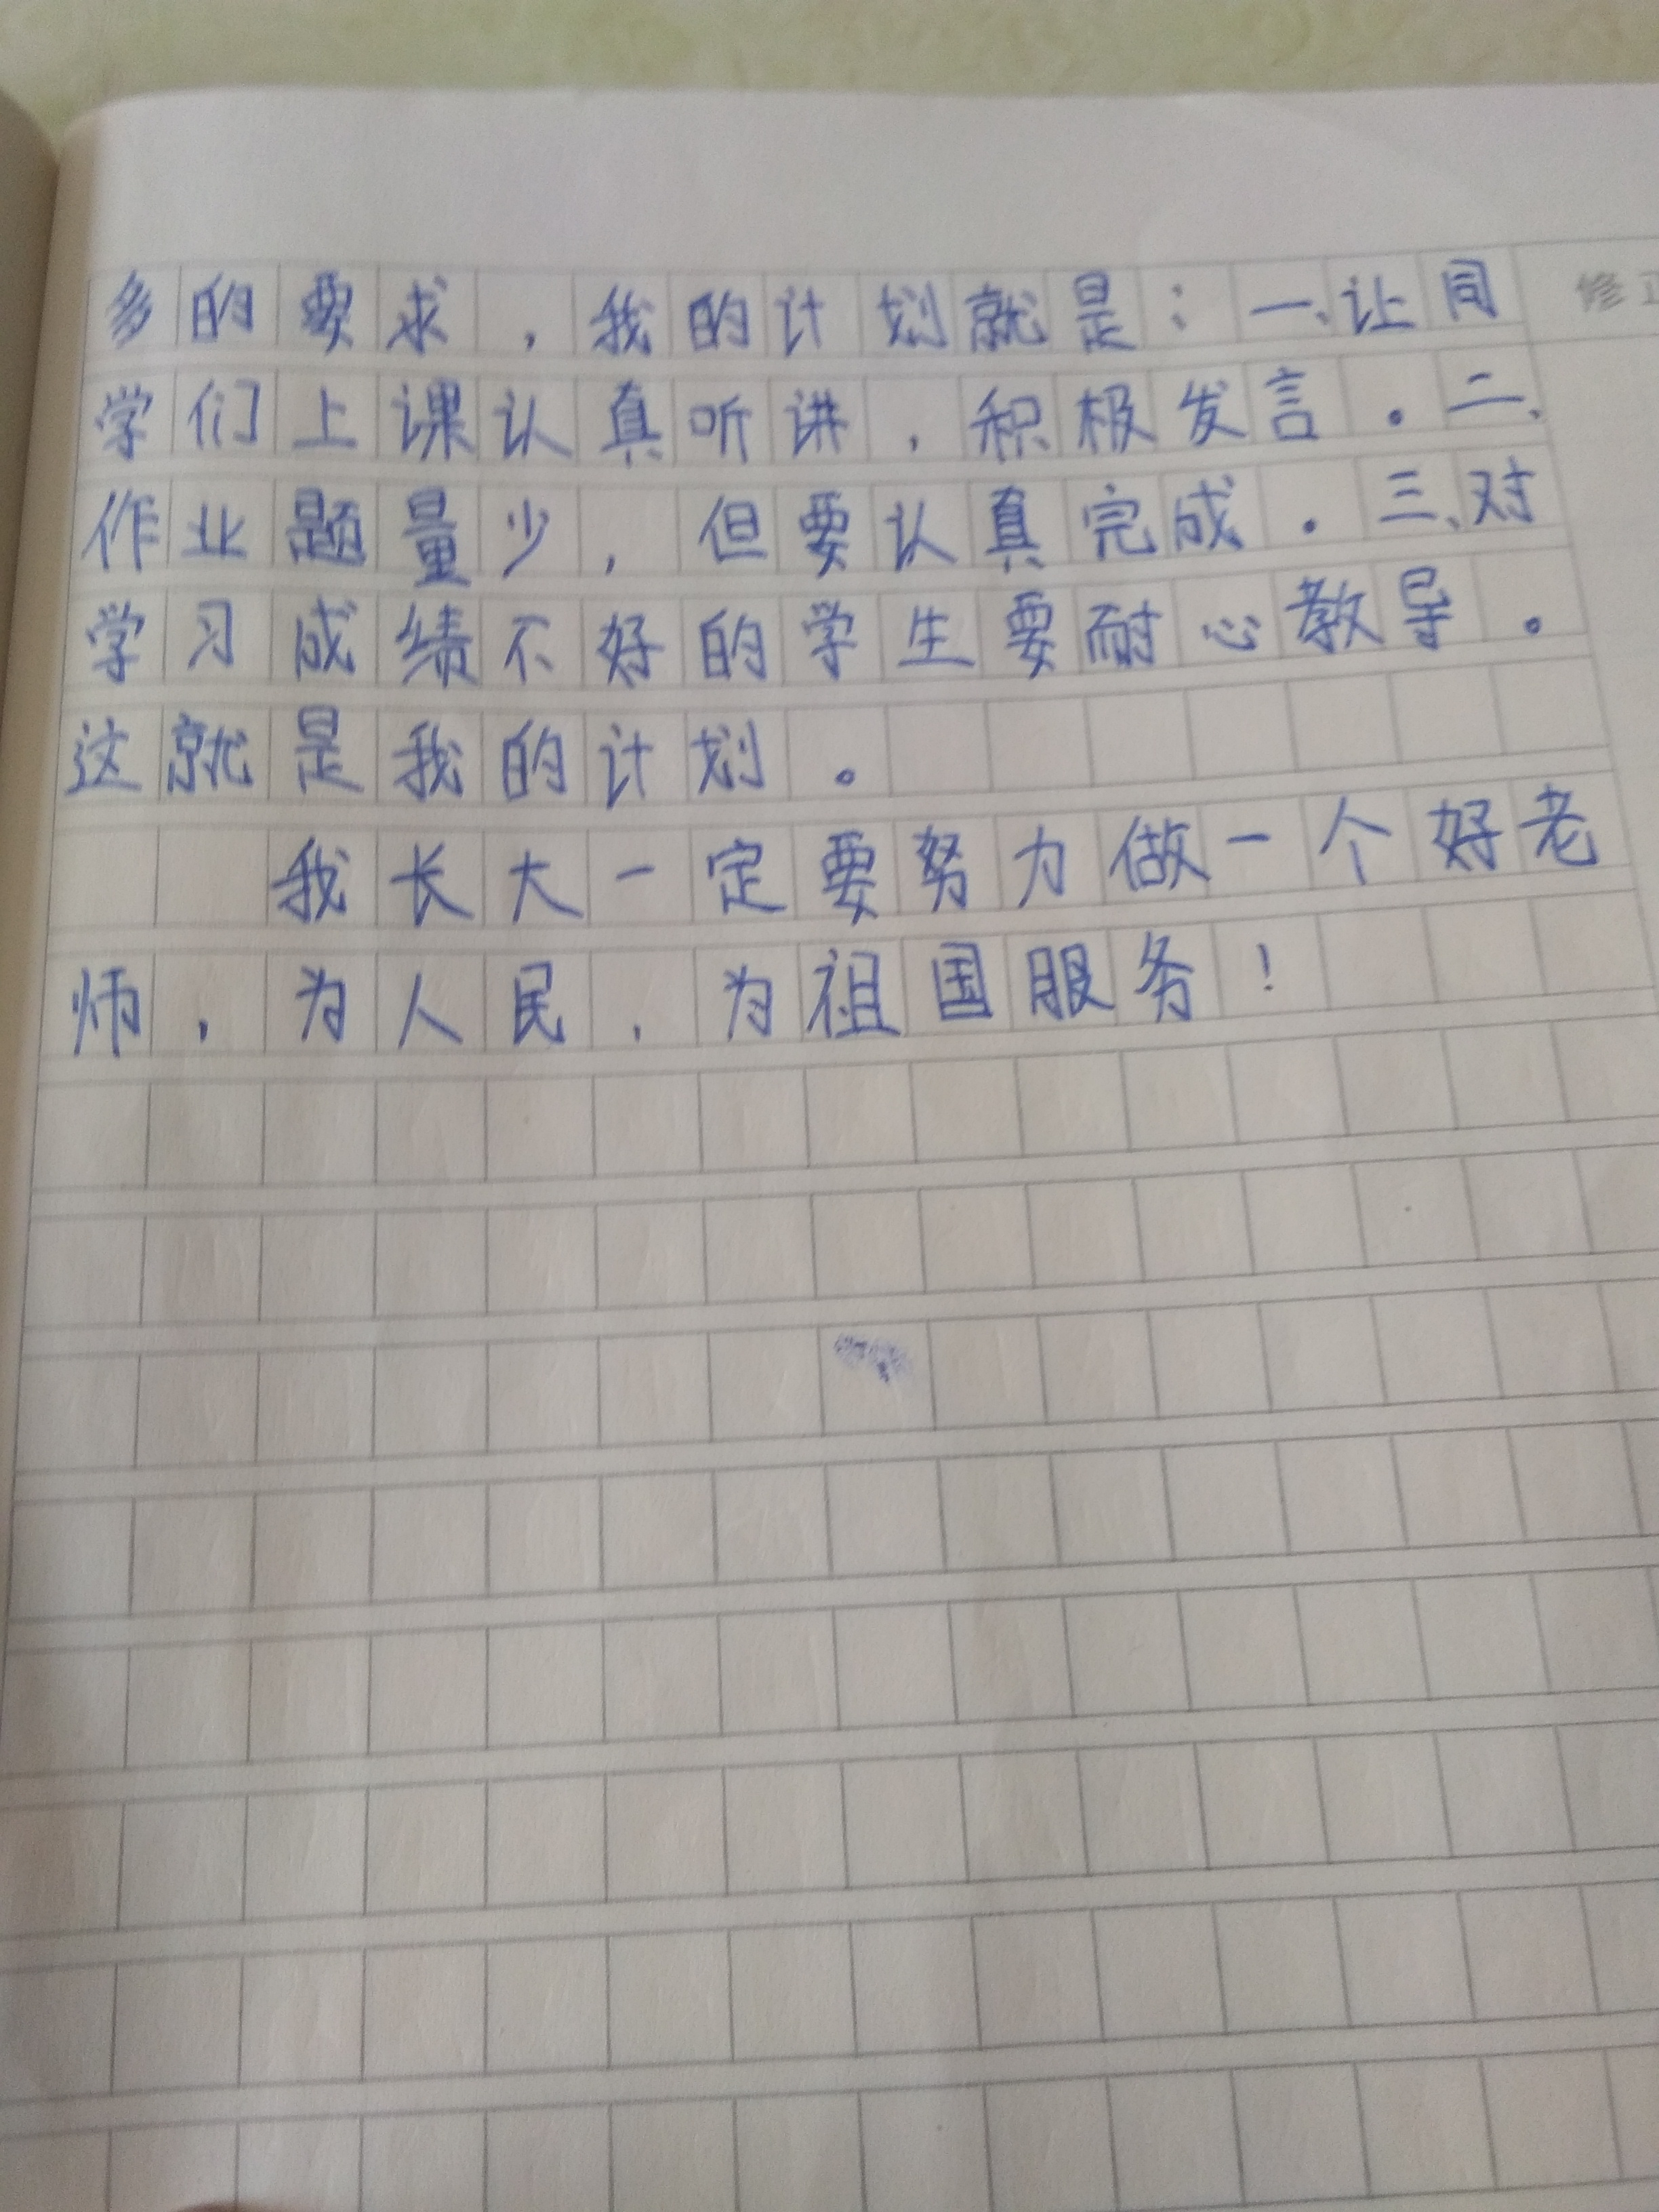 多的要求，我的计划就是：一、让同
学们上课认真听讲，积极发言。二、
作业题量少，但要认真完成。三、对
学习成绩不好的学生要耐心教导。
这就是我的计划。
我长大一定要努力做一个好老
师，为人民，为祖国服务！
修正